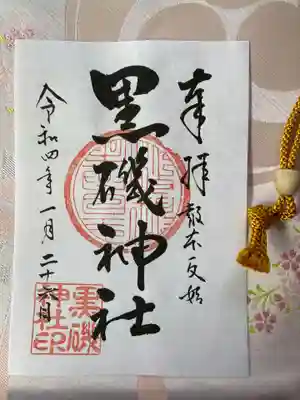 奉拝
黒磯神社
令和四年一月二十六日
黒磯
神社印